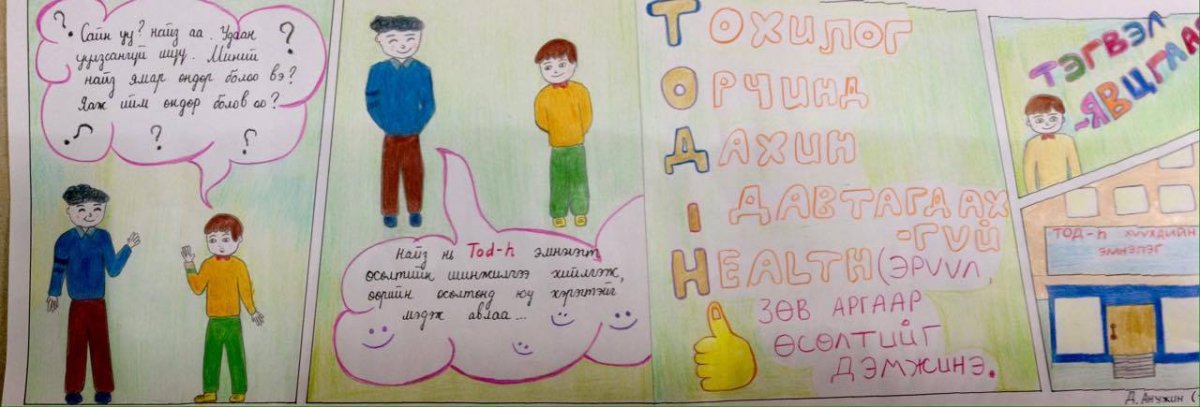 Сайн уу? найз аа. Удаан
уулзсангүй шүү. Миний
найз ямар өндөр болоо вэ?
Яаж ийм өндөр болов оо?
Найз нь Tod-h эмнэлэгт
өсөлтийн шинжилгээ хийлгэж,
өөрийн өсөлтөнд юу хэрэгтэйг
мэдэж авлаа...
ТОХИЛОГ
ОРЧИНД
ДАХИН
ДАВТАГДАХ
-ГҮЙ
HEALTH (ЭРҮҮЛ,
ЗӨВ АРГААР
ӨСӨЛТИЙГ
ДЭМЖИНЭ.
ТЭГВЭЛ
-ЯВЦГАА
ТОД-h ХҮҮХДИЙН
ЭМНЭЛЭГ
Д. Анужин (